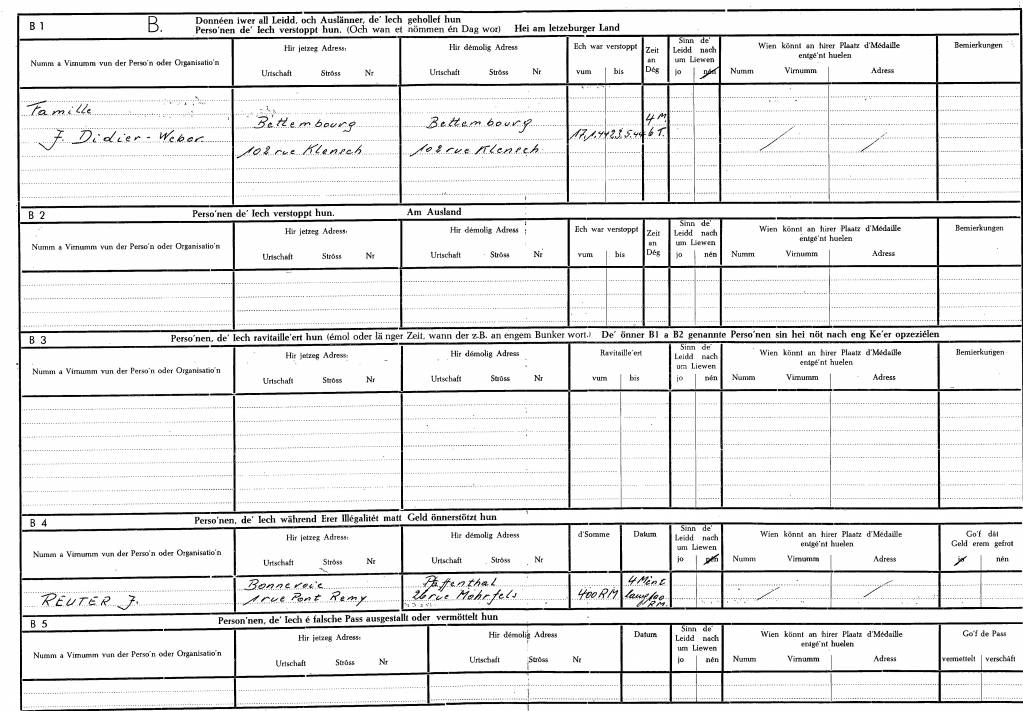 B 1 B. Donnéen iwer all Leidd, och Auslänner, de' Iech gehollef hun
Perso'nen de' Iech verstoppt hun. (Och wan et nömmen én Dag wor) Hei am letzeburger Land
Numm a Virnumm vun der Perso'n oder Organisatio'n
Hir jetzeg Adress:
Urtschaft Ströss Nr
Hir démolig Adress
Urtschaft Ströss Nr
Ech war verstoppt
vum bis
Zeit an Dég
Sinn de' Leidd nach um Liewen
jo nén
Wien könnt an hirer Plaatz d'Médaille entgé'nt huelen
Numm Virnumm Adress
Bemierkungen
Famille
J. Didier-Weber.
Bettembourg
102 rue Klensch
Bettembourg
102 rue Klensch
17.1.44 23.5.44
4 M
6 T.
B 2 Perso'nen de' Iech verstoppt hun. Am Ausland
Numm a Virnumm vun der Perso'n oder Organisatio'n
Hir jetzeg Adress:
Urtschaft Ströss Nr
Hir démolig Adress
Urtschaft Ströss Nr
Ech war verstoppt
vum bis
Zeit an Dég
Sinn de' Leidd nach um Liewen
jo nén
Wien könnt an hirer Plaatz d'Médaille entgé'nt huelen
Numm Virnumm Adress
Bemierkungen
B 3 Perso'nen, de' Iech ravitaille'ert hun (émol oder lä nger Zeit, wann der z.B. an engem Bunker wort.) De' önner B1 a B2 genannte Perso'nen sin hei nöt nach eng Ke'er opzeziélen
Numm a Virnumm vun der Perso'n oder Organisatio'n
Hir jetzeg Adress:
Urtschaft Ströss Nr
Hir démolig Adress
Urtschaft Ströss Nr
Ravitaille'ert
vum bis
Sinn de' Leidd nach um Liewen
jo nén
Wien könnt an hirer Plaatz d'Médaille entgé'nt huelen
Numm Virnumm Adress
Bemierkungen
B 4 Perso'nen, de' Iech während Erer Illégalitét matt Geld önnerstötzt hun
Numm a Virnumm vun der Perso'n oder Organisatio'n
Hir jetzeg Adress:
Urtschaft Ströss Nr
Hir démolig Adress
Urtschaft Ströss Nr
d'Somme
Datum
Sinn de' Leidd nach um Liewen
jo nén
Wien könnt an hirer Plaatz d'Médaille entgé'nt huelen
Numm Virnumm Adress
Go'f dât Geld erem gefrot
jo nén
REUTER J.
Bonnevoie
1 rue Pont Remy
Pfaffenthal
26 rue Mohrfels
400 RM
4 Mént
lang 100
RM.
B 5 Person'nen, de' Iech é falsche Pass ausgestallt oder vermöttelt hun
Numm a Virnumm vun der Perso'n oder Organisatio'n
Hir jetzeg Adress:
Urtschaft Ströss Nr
Hir démolig Adress
Urtschaft Ströss Nr
Datum
Sinn de' Leidd nach um Liewen
jo nén
Wien könnt an hirer Plaatz d'Médaille entgé'nt huelen
Numm Virnumm Adress
Go'f de Pass
vermettelt verschâft